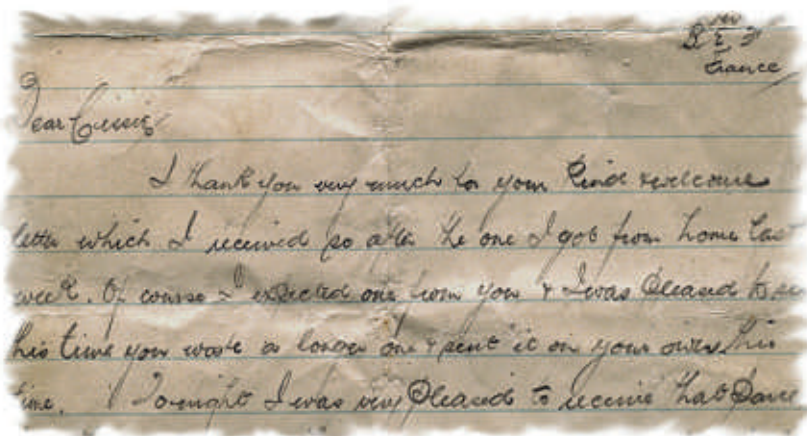 B E F
France
Dear Cussie
I thank you very much for your kind & welcome
letter which I received so after the one I got from home last
week. Of course I expected one from you & I was pleased to see
this time you wrote a longer one & sent it on your own this
time. Tonight I was very pleased to receive that